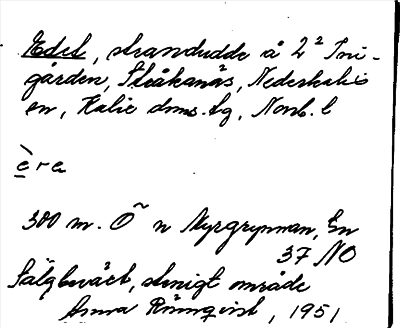 Edet, strandudde å 2² Tri-
gården, Stråkanäs, Nederkalix-
en, Kalix dms. tg, Norrb. l
è r e
300 m. Ö n Nyrgrynnan, En
37 NO
Sälgbuväxt, stenigt område
Anna Rönnqvist, 1951